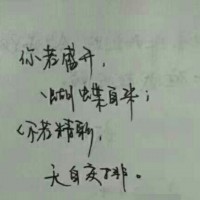 你若盛开，
蝴蝶自来；
你若精彩，
天自安排。